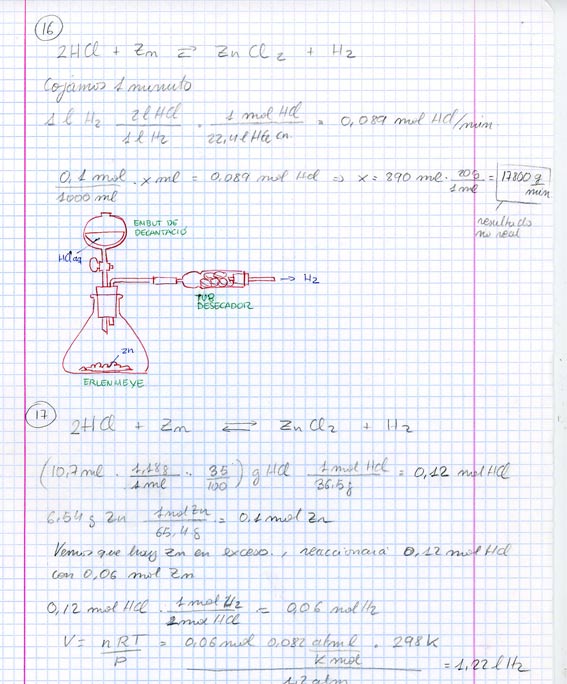 16
2HCl + Zn ⇄ ZnCl2 + H2
Cojamos 1 minuto
1 l H2 · 2 l HCl / 1 l H2 · 1 mol HCl / 22,4 l cn = 0,089 mol HCl/min
0,1 mol / 1000 ml · x ml = 0,089 mol HCl ⇒ x = 890 ml · 20 g / 1 ml = 17800 g / min
resultado
no real
EMBUT DE
DECANTACIÓ
HCl aq
→ H2
TUB
DESECADOR
Zn
ERLENMEYE
17
2HCl + Zn ⇄ ZnCl2 + H2
(10,7 ml · 1,18 g / 1 ml · 35 / 100) g HCl 1 mol HCl / 36,5 g = 0,12 mol HCl
6,54 g Zn 1 mol Zn / 65,4 g = 0,1 mol Zn
Vemos que hay Zn en exceso, reaccionará 0,12 mol HCl
con 0,06 mol Zn
0,12 mol HCl · 1 mol H2 / 2 mol HCl = 0,06 mol H2
V = nRT / P = 0,06 mol 0,082 atm l / K mol · 298 K / 1,2 atm = 1,22 l H2